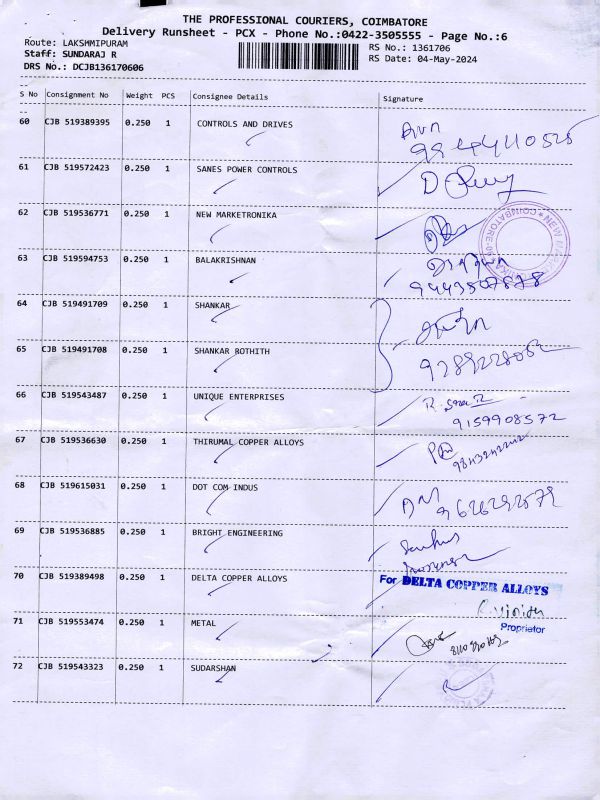 THE PROFESSIONAL COURIERS, COIMBATORE
Delivery Runsheet - PCX - Phone No.:0422-3505555 - Page No.:6
Route: LAKSHMIPURAM
RS No.: 1361706
Staff: SUNDARAJ R
RS Date: 04-May-2024
DRS No.: DCJB136170606
S No Consignment No Weight PCS Consignee Details Signature
60 CJB 519389395 0.250 1 CONTROLS AND DRIVES
61 CJB 519572423 0.250 1 SANES POWER CONTROLS
62 CJB 519536771 0.250 1 NEW MARKETRONIKA
63 CJB 519594753 0.250 1 BALAKRISHNAN
9443507878
64 CJB 519491709 0.250 1 SHANKAR
65 CJB 519491708 0.250 1 SHANKAR ROTHITH
66 CJB 519543487 0.250 1 UNIQUE ENTERPRISES
9159908572
67 CJB 519536630 0.250 1 THIRUMAL COPPER ALLOYS
68 CJB 519615031 0.250 1 DOT COM INDUS
69 CJB 519536885 0.250 1 BRIGHT ENGINEERING
70 CJB 519389498 0.250 1 DELTA COPPER ALLOYS
For DELTA COPPER ALLOYS
Proprietor
71 CJB 519553474 0.250 1 METAL
72 CJB 519543323 0.250 1 SUDARSHAN